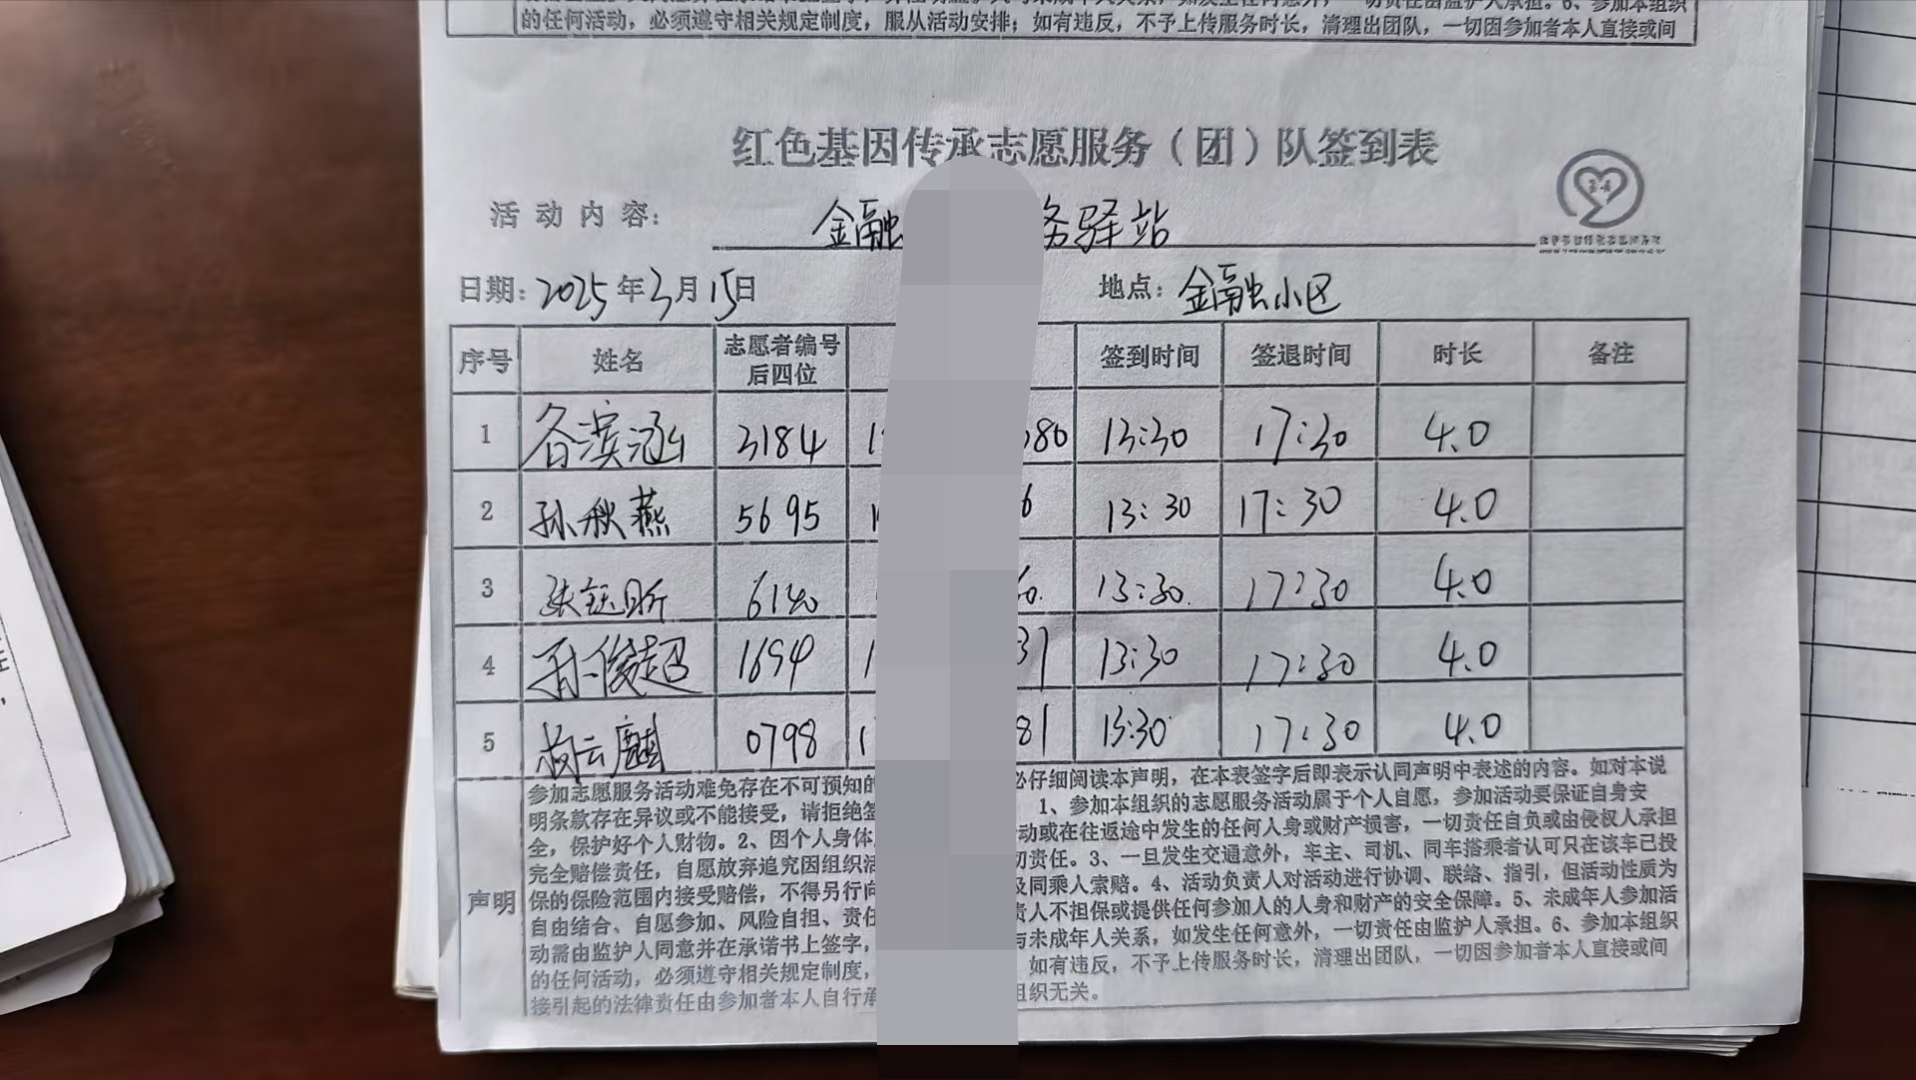 的任何活动，必须遵守相关规定制度，服从活动安排；如有违反，不予上传服务时长，清理出团队，一切因参加者本人直接或间
红色基因传承志愿服务（团）队签到表
活动内容： 金融 务驿站
日期：2025年3月15日 地点：金融小区
序号 姓名 志愿者编号后四位 签到时间 签退时间 时长 备注
1 谷滨涵 3184 1 380 13:30 17:30 4.0
2 孙秋燕 5695 1 6 13:30 17:30 4.0
3 张钰昕 6140 6. 13:30 17:30 4.0
4 孙俊超 1694 1 31 13:30 17:30 4.0
5 云麒 0798 1 81 13:30 17:30 4.0
声明
参加志愿服务活动难免存在不可预知的 必仔细阅读本声明，在本表签字后即表示认同声明中表述的内容。如对本说
明条款存在异议或不能接受，请拒绝签 1、参加本组织的志愿服务活动属于个人自愿，参加活动要保证自身安
全，保护好个人财物。2、因个人身体 动或在往返途中发生的任何人身或财产损害，一切责任自负或由侵权人承担
完全赔偿责任，自愿放弃追究因组织活 切责任。3、一旦发生交通意外，车主、司机、同车搭乘者认可只在该车已投
保的保险范围内接受赔偿，不得另行向 及同乘人索赔。4、活动负责人对活动进行协调、联络、指引，但活动性质为
自由结合、自愿参加、风险自担、责任 责人不担保或提供任何参加人的人身和财产的安全保障。5、未成年人参加活
动需由监护人同意并在承诺书上签字， 与未成年人关系，如发生任何意外，一切责任由监护人承担。6、参加本组织
的任何活动，必须遵守相关规定制度， 如有违反，不予上传服务时长，清理出团队，一切因参加者本人直接或间
接引起的法律责任由参加者本人自行承 组织无关。